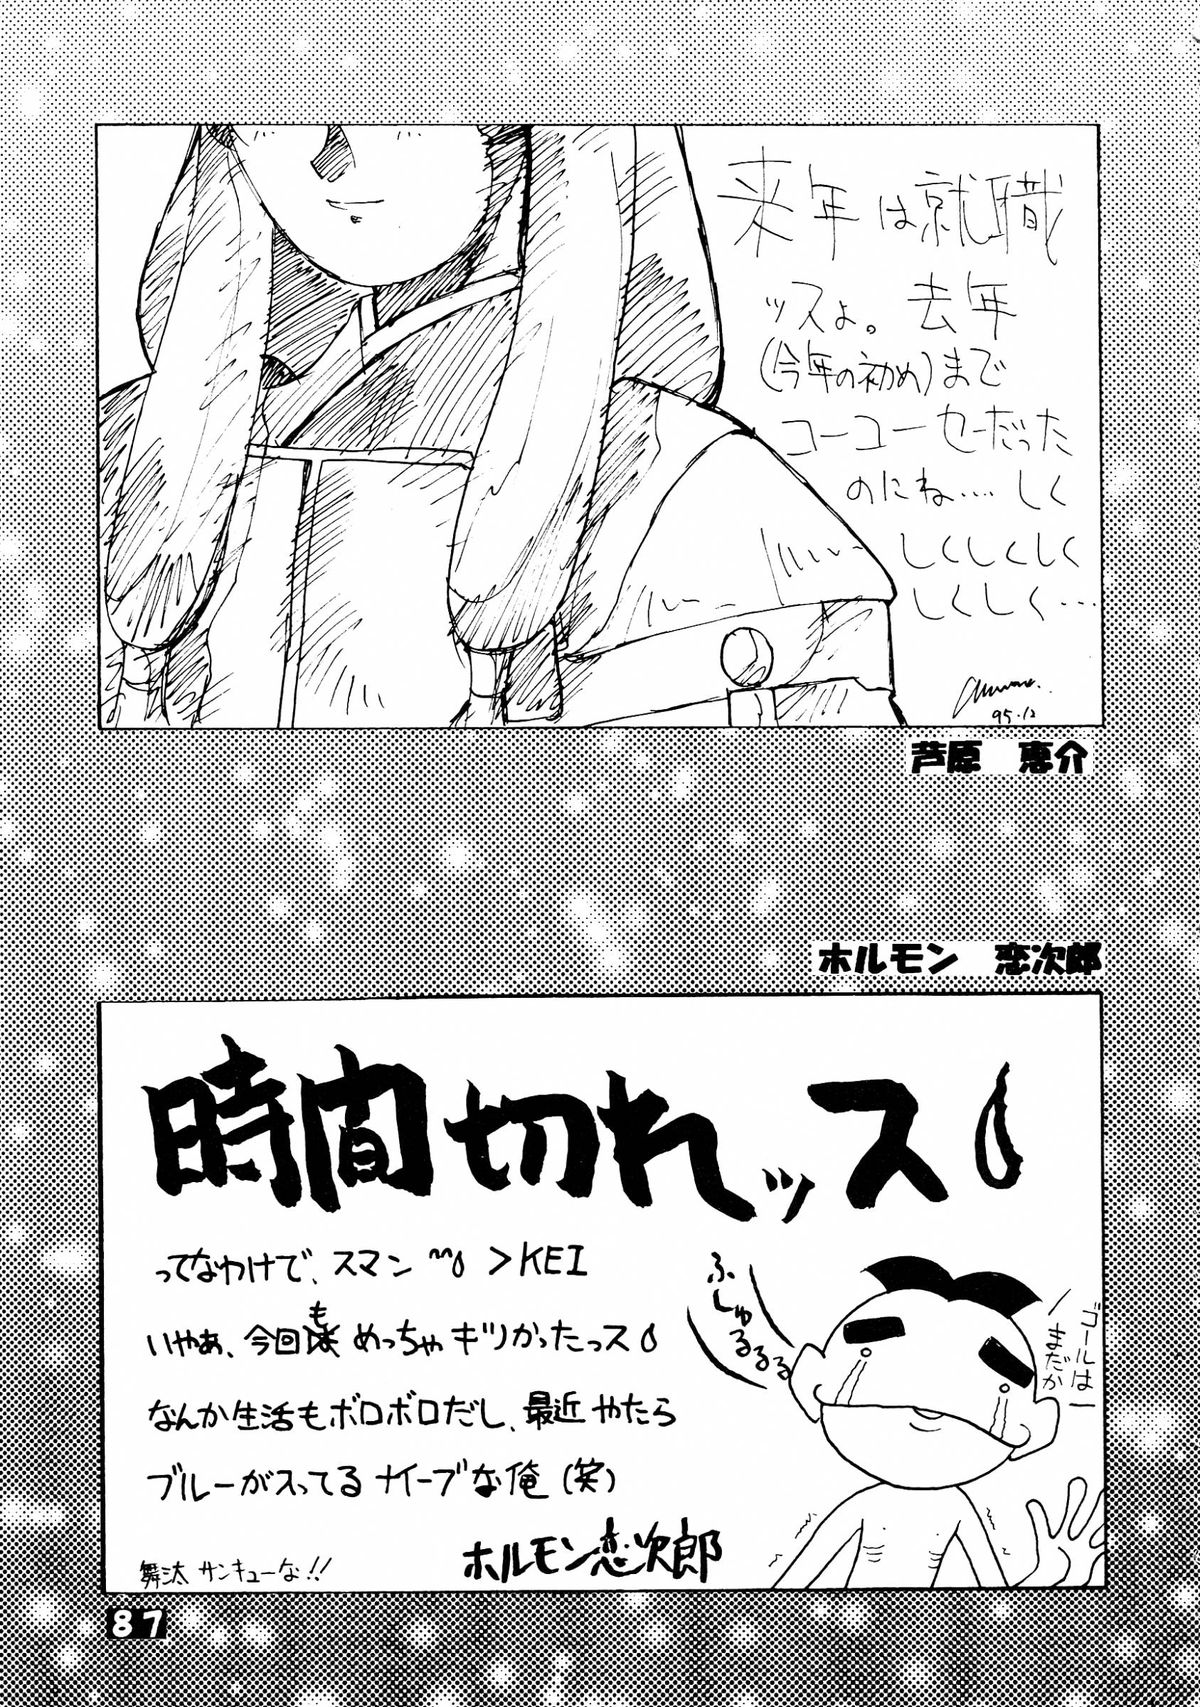 来年は就職
ッスよ。去年
(今年の初め)まで
コーユーセーだった
のにね…. しく
しくしくしく
しくしく…
95.12
芦原　恵介
ホルモン　恋次郎
時間切れッス
ってなわけで、スマン >KEI
いやぁ、今回も めっちゃ キツかったっス
なんか生活もボロボロだし、最近 やたら
ブルーが入ってる ナイーブな俺 (笑)
ホルモン恋次郎
舞汰 サンキューな!!
ふしゅるるるる
ゴールは
まだかー
87